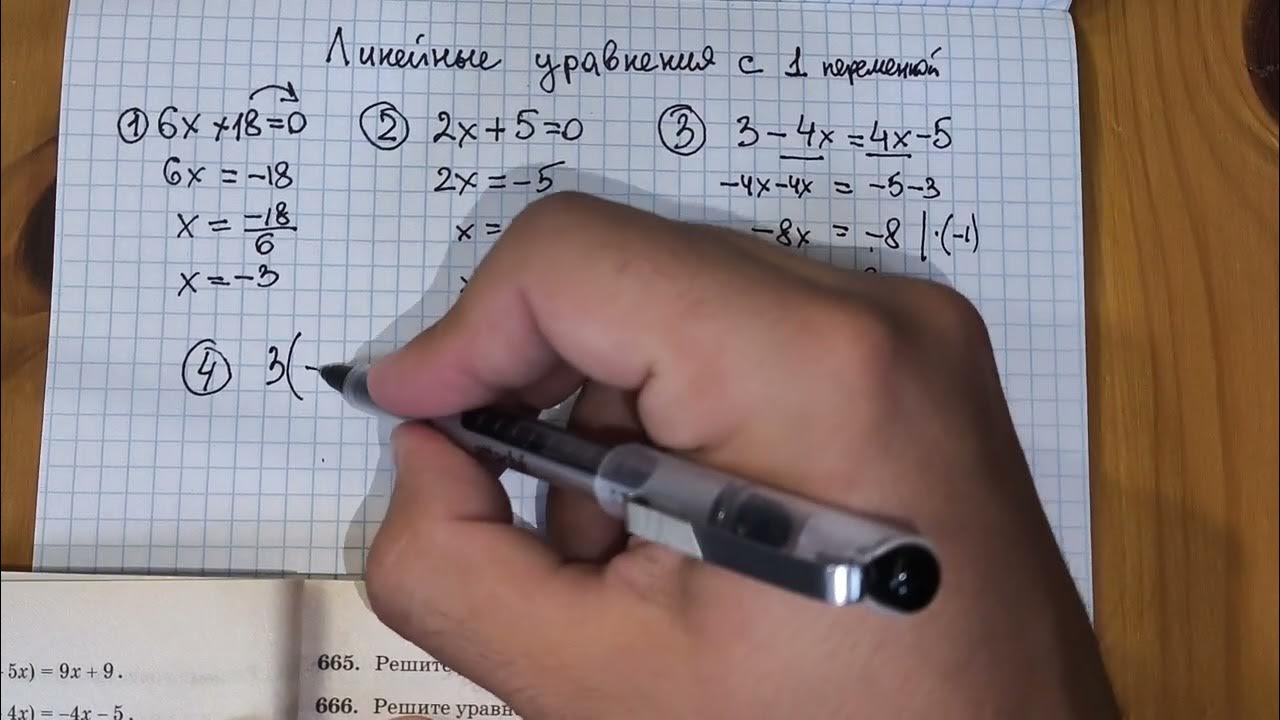 Линейные уравнения с 1 переменной
① 6x+18=0
6x = -18
x = -18/6
x = -3
② 2x+5=0
2x = -5
x =
③ 3-4x = 4x-5
-4x-4x = -5-3
-8x = -8 |·(-1)
④ 3(-
5x) = 9x + 9.
4x) = –4x – 5.
665. Решите
666. Решите